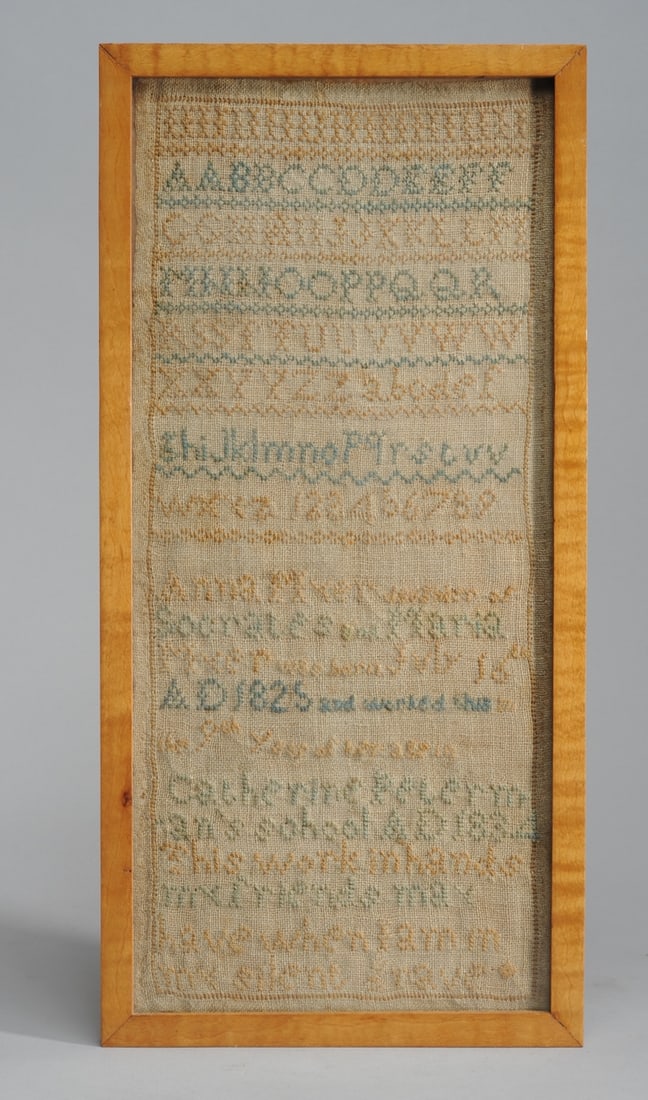 A A B B C C D D E E F F
G G H H I I J J K K L L
M M N N O O P P Q Q R
S S T T U U V V W W
X X Y Y Z Z a b c d e f
g h i J k l m n o P q r s t u v
w x y z 1 2 3 4 5 6 7 8 9
Anna
Socrates and Maria
was born July 16th
A D 1825 and worked this in
the 9th Year of her age in
Catherine Peterm
an's school A D 1834
This work in hands
my friends may
have when I am in
my silent grave